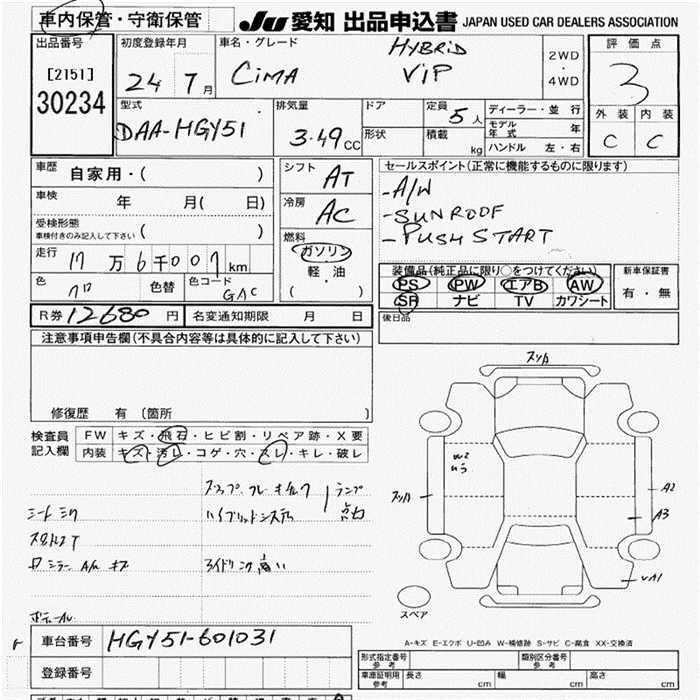 車内保管・守衛保管
JU 愛知 出品申込書 JAPAN USED CAR DEALERS ASSOCIATION
出品番号
[2151]
30234
初度登録年月
24 7月
車名・グレード
CIMA
HYBRID
VIP
2WD
・
4WD
評価点
3
外装 内装
C C
型式
DAA-HGY51
排気量
3.49cc
ドア
形状
定員
5人
積載
kg
ディーラー・並行
モデル年式 年
ハンドル 左・右
車歴
自家用・( )
車検
年 月( 日)
受検形態
車検付きのみ記入して下さい ( )
走行
17万6千007km
色
色替
色コード
GAC
シフト
AT
冷房
AC
燃料
ガソリン
軽・油
( )
セールスポイント(正常に機能するものに限ります)
-A/W
-SUNROOF
-PUSH START
装備品(純正品に限り○をつけてください)
PS PW エアB AW
SR ナビ TV カワシート
新車保証書
有・無
R券 12680円
名変通知期限 月 日
後日品
注意事項申告欄(不具合内容等は具体的に記入して下さい)
修復歴 有(箇所 )
検査員
記入欄
FW キズ・飛石・ヒビ割・リペア跡・X要
内装 キズ・汚レ・コゲ・穴・スレ・キレ・破レ
ランプ
ハイブリッドシステム
アイドリング高い
A2
A3
A1
W2
スペア
A-キズ E-エクボ U-凹み W-補修跡 S-サビ C-腐食 XX-交換済
車台番号
HGY51-601031
登録番号
形式指定番号
参考
類別区分番号
参考
車庫証明用
参考
長さ cm
幅 cm
高さ cm